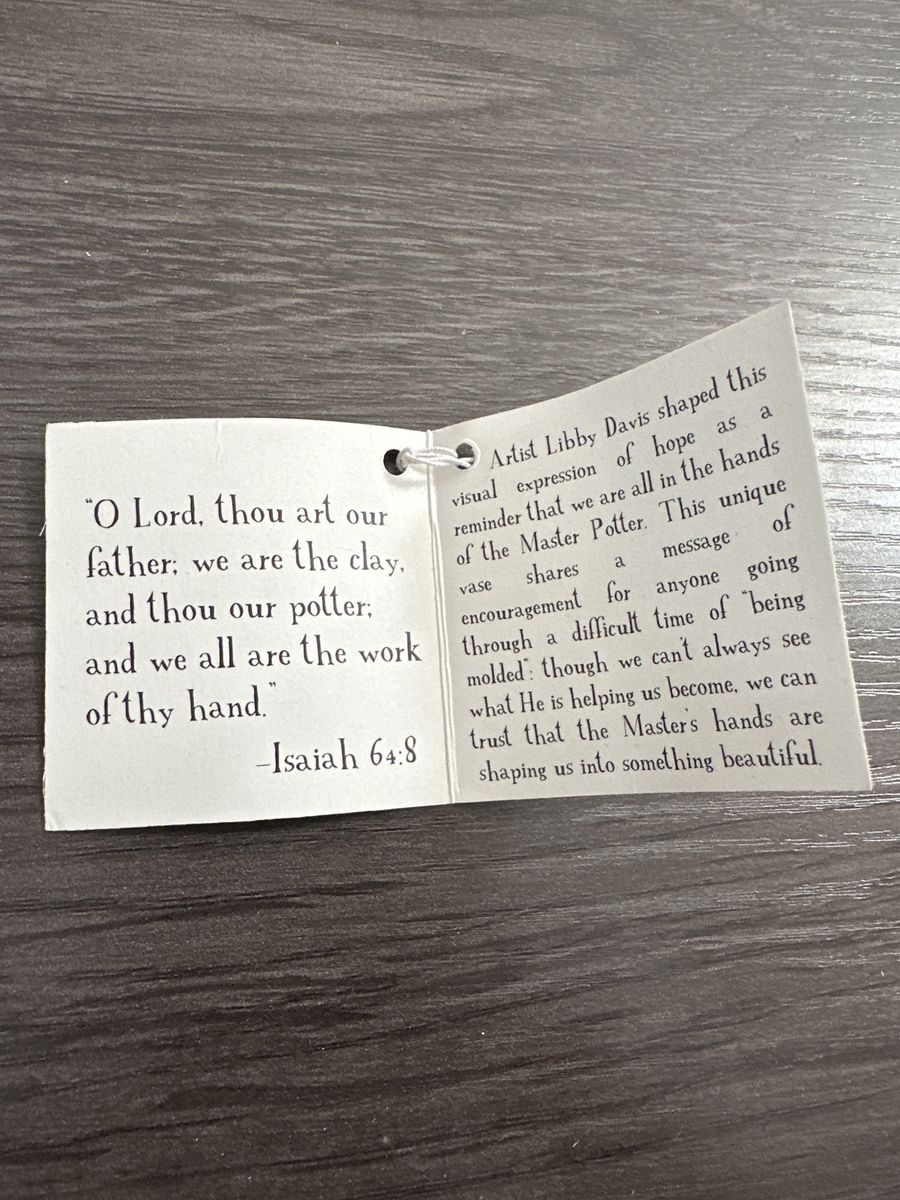 "O Lord, thou art our
father; we are the clay,
and thou our potter;
and we all are the work
of thy hand."
–Isaiah 64:8
Artist Libby Davis shaped this
visual expression of hope as a
reminder that we are all in the hands
of the Master Potter. This unique
vase shares a message of
encouragement for anyone going
through a difficult time of "being
molded": though we can't always see
what He is helping us become, we can
trust that the Master's hands are
shaping us into something beautiful.